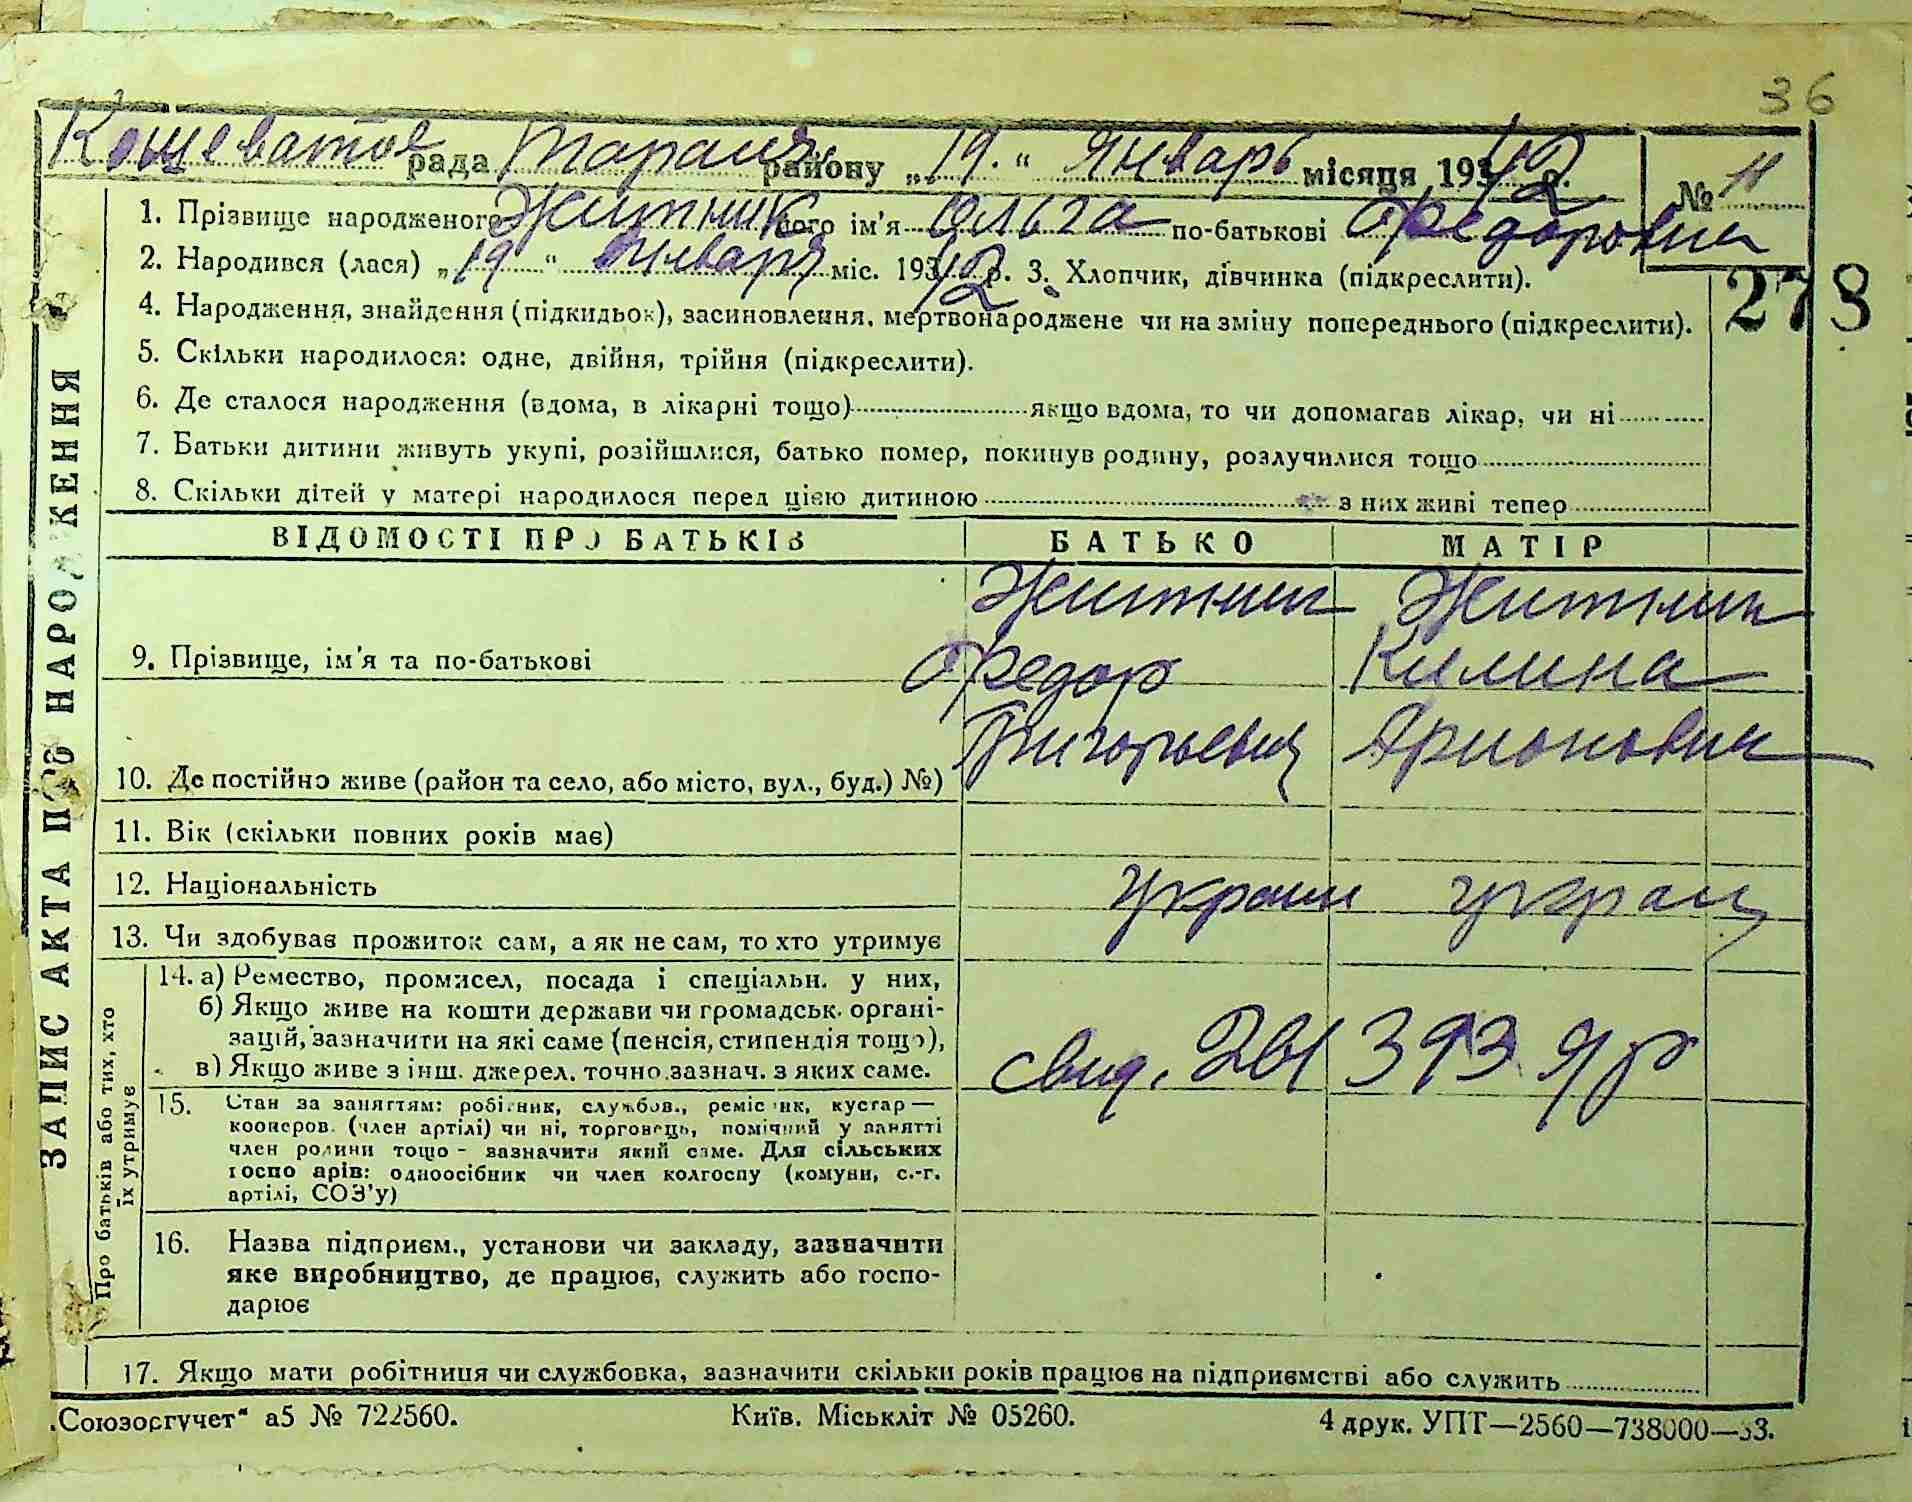 36
Кощеватое рада Таращан району „19.“ Январь місяця 1942 р. № 11
1. Прізвище народженого Житник його ім'я Ольга по-батькові Федоровна
2. Народився (лася) „19“ Января міс. 1942 р. 3. Хлопчик, дівчинка (підкреслити).
278
4. Народження, знайдення (підкидьок), засиновлення, мертвонароджене чи на зміну попереднього (підкреслити).
5. Скільки народилося: одне, двійня, трійня (підкреслити).
6. Де сталося народження (вдома, в лікарні тощо) якщо вдома, то чи допомагав лікар, чи ні
7. Батьки дитини живуть укупі, розійшлися, батько помер, покинув родину, розлучилися тощо
8. Скільки дітей у матері народилося перед цією дитиною з них живі тепер
ЗАПИС АКТА ПРО НАРОДЖЕННЯ
ВІДОМОСТІ ПРО БАТЬКІВ БАТЬКО МАТІР
Житник Житник
9. Прізвище, ім'я та по-батькові Федор Килина
Григорьевич
10. Де постійно живе (район та село, або місто, вул., буд.) №)
11. Вік (скільки повних років має)
12. Національність украин украинц
13. Чи здобував прожиток сам, а як не сам, то хто утримує
Про батьків або тих, хто їх утримує
14. а) Ремество, промисел, посада і спеціальн. у них,
б) Якщо живе на кошти держави чи громадськ. органі-
зацій, зазначити на які саме (пенсія, стипендія тощо),
в) Якщо живе з інш. джерел. точно зазнач. з яких саме.
свид.
15. Стан за заняттям: робітник, службов., ремісник, кустар —
кооперов. (член артілі) чи ні, торговець, помічний у занятті
член родини тощо - зазначити який саме. Для сільських
господарів: одноосібник чи член колгоспу (комуни, с.-г.
артілі, СОЗ'у)
16. Назва підприєм., установи чи закладу, зазначити
яке виробництво, де працює, служить або госпо-
дарює
17. Якщо мати робітниця чи службовка, зазначити скільки років працює на підприємстві або служить
„Союзоргучет“ а5 № 722560. Київ. Міськліт № 05260. 4 друк. УПТ—2560—738000—33.